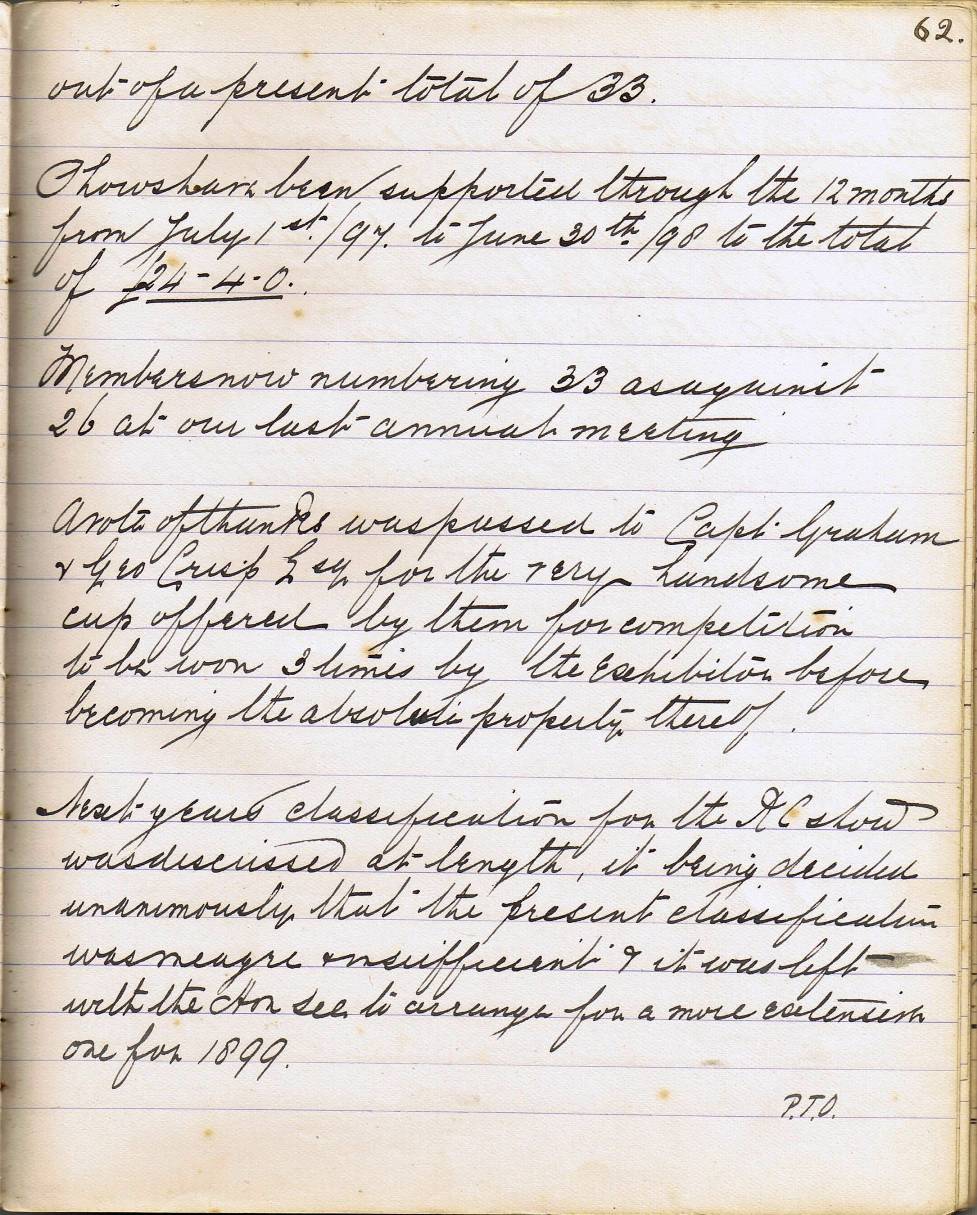 62.
out of a present total of 33.
Shows have been supported through the 12 months
from July 1st/97. to June 30th/98 to the total
of £24-4-0.
Members now numbering 33 as against
26 at our last annual meeting
A vote of thanks was passed to Capt Graham
& Geo Crisp Esq for the very handsome
cup offered by them for competition
to be won 3 times by the Exhibitor before
becoming the absolute property thereof.
Next years classification for the KC show
was discussed at length, it being decided
unanimously that the present classification
was meagre & insufficient & it was left
with the Hon Sec to arrange for a more extensive
one for 1899.
P.T.O.